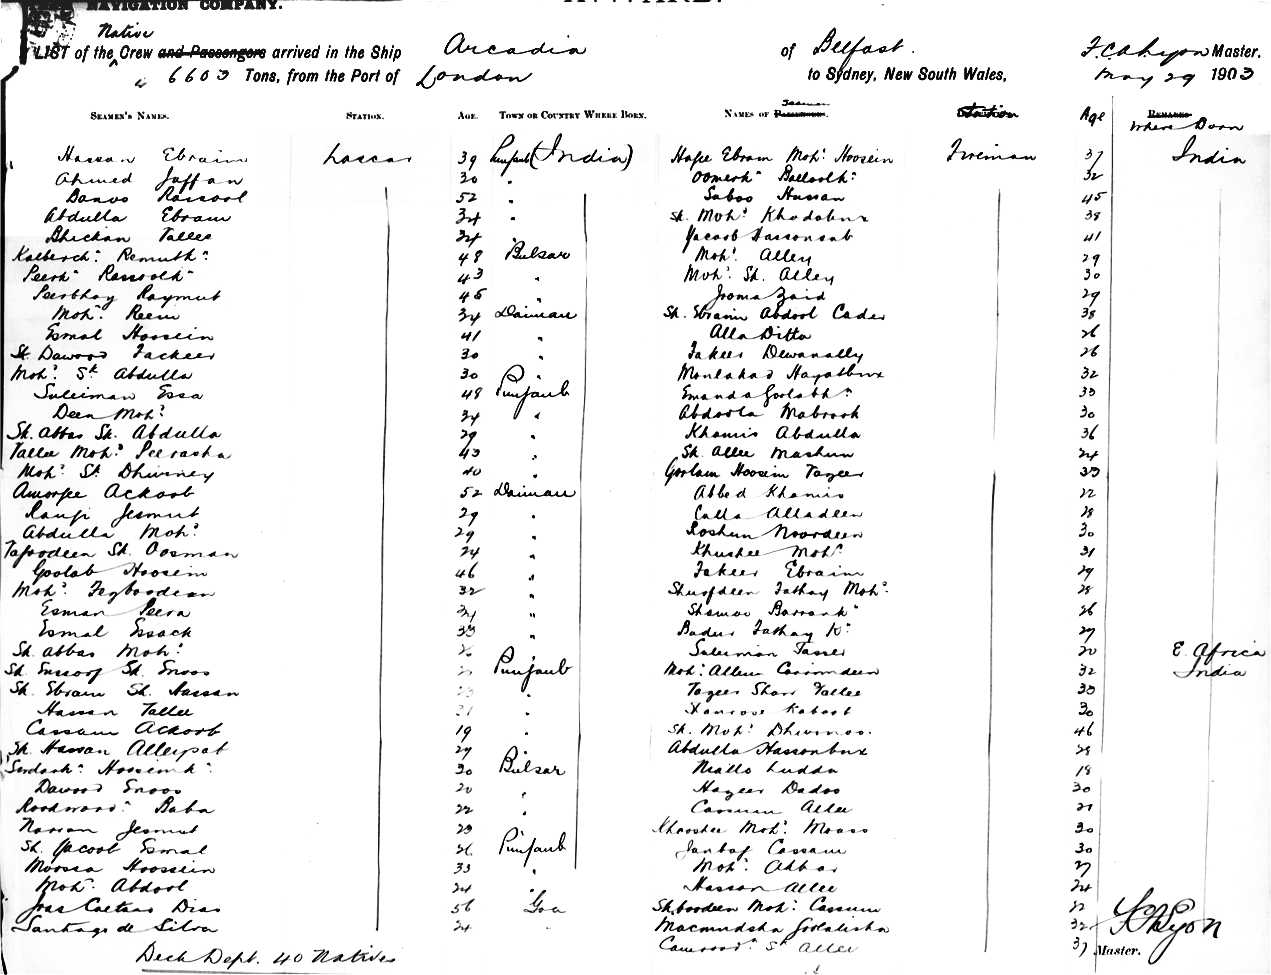 NAVIGATION COMPANY.
Native
LIST of the Crew and Passengers arrived in the Ship Arcadia of Belfast. Master.
6603 Tons, from the Port of London to Sydney, New South Wales, May 29 1903
SEAMEN'S NAMES. STATION. AGE. TOWN OR COUNTRY WHERE BORN. NAMES OF Seamen Station Age REMARKS Where Born
Hassan Ebraim Lascar 39 Punjaub (India) Hafie Ebram Moh: Hoosein Fireman 37 India
Ahmed Jaffan 30 " Oomerk: Ballookh: 32
Danoo Rassool 52 " Saboo Hassan 45
Abdulla Ebram 34 " Sk. Moh: Khodabux 38
Bhickan Tallee 34 " Yacoob Hassonsab 41
Kalberch: Remutk: 48 Bulsar Moh: Alley 29
Peerk: Rassoolk: 43 " Moh: Sk. Alley 30
Peerbhoy Raymut 45 " Jooma Zaid 29
Moh: Reem 34 Daiman Sk. Ebraim Abdool Cader 38
Esmal Hoosein 41 " Alla Ditta 26
Sk. Dawood Fackeer 30 " Fakeer Dewanally 26
Moh: Sk Abdulla 30 " Moulabad Hayatbux 32
Suleiman Essa 48 Punjaub Emanda Goolabk: 33
Deen Moh: 34 " Abdoola Mabrook 30
Sk. Abbas Sk. Abdulla 29 " Khamis Abdulla 36
Tallee Moh: Peerasha 43 " Sk. Allee Mashum 24
Moh: Sk Dhurney 40 " Goolam Hoosein Tageer 33
Amoorjee Ackoob 52 Daiman Abbod Khamis 22
Ranji Jesmut 29 " Calla Alladeen 28
Abdulla Moh: 29 " Roshun Noordeen 30
Tajoodeen Sk. Oosman 24 " Khushee Moh: 31
Goolab Hoosein 46 " Fakeer Ebraim 29
Moh: Fegboodean 32 " Shurfdeen Fathay Moh: 28
Esman Peera 34 " Shamoo Barrank: 26
Esmal Essack 33 " Badur Fathay K: 27
Sk. Abbas Moh: Suleiman Tasser 20 E. Africa
Sk. Enssoof Sk. Enoos Punjaub Moh: Alleen Cassimdeen 32 India
Sk. Ebram Sk. Hassan " Tageer Sharr Fallee 33
Hassan Tallee 21 " Kaboot 30
Cassam Ackoob 19 " Sk. Moh: Dhurmoo. 46
Sk. Hassan Alleepat 29 " Abdulla Hassonbux 28
Serdark: Hoosienk: 30 Bulsar Niallo Ludda 18
Dawood Enoos 20 " Hageer Dadoo 30
Roodwood: Baba 22 " Cassum Allee 21
Nassan Jesmut 23 " Khooshee Moh: Mooss 30
Sk. Yacoob Esmal 26 Punjaub Janbag Cassam 30
Moossa Hoossein 33 " Moh: Akbar 27
Moh: Abdool 24 " Hassan Allee 24
Joas Caetano Dias 56 Goa Sk. boodeen Moh: Cassum 22
Santiago de Silva 24 " Macmudsha Goolabsha 32
Deck Dept. 40 Natives Sk Allee 37 Master.